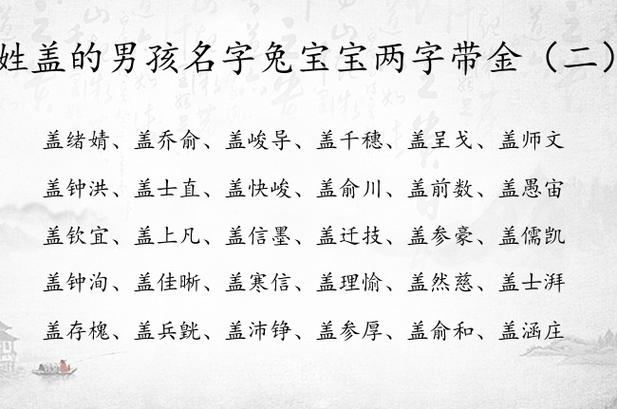 姓盖的男孩名字兔宝宝两字带金（二）
盖绪婧、盖乔俞、盖峻导、盖千穗、盖呈戈、盖师文
盖钟洪、盖士直、盖快峻、盖俞川、盖前数、盖愚宙
盖钦宜、盖上凡、盖信墨、盖迁技、盖参豪、盖儒凯
盖钟洵、盖佳晰、盖寒信、盖理愉、盖然慈、盖士湃
盖存槐、盖兵毓、盖沛铮、盖参厚、盖俞和、盖涵庄